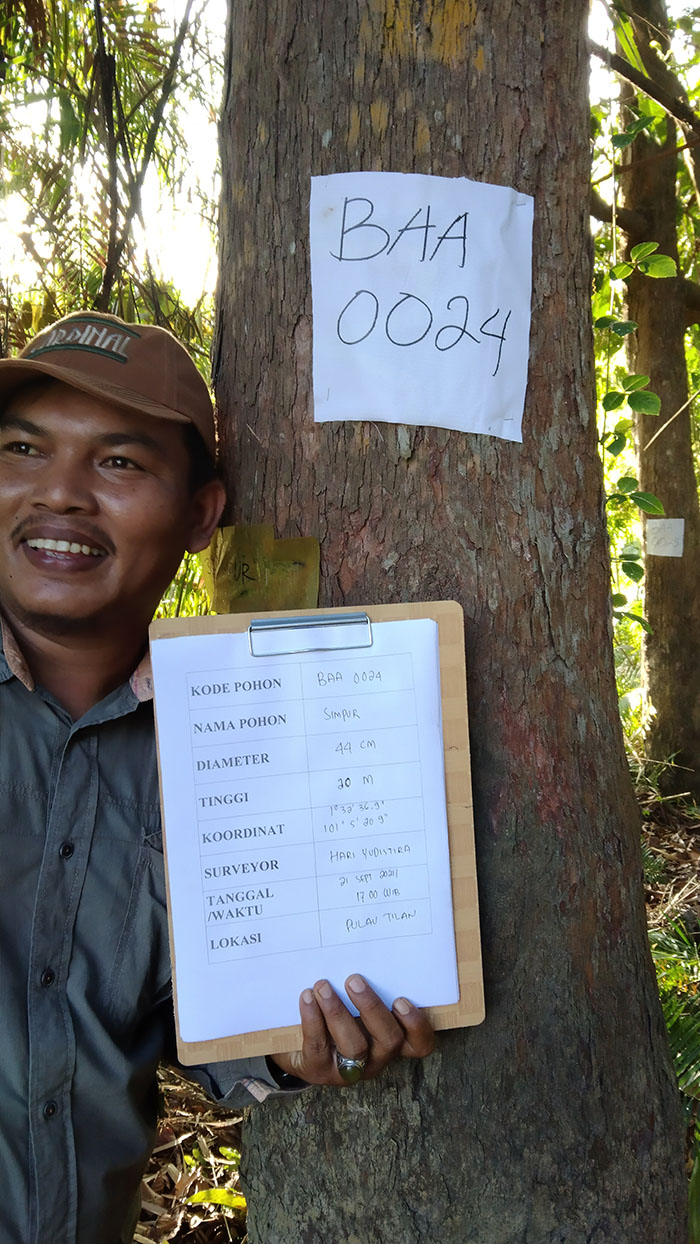 BAA
0024
UR
KODE POHON BAA 0024
NAMA POHON SIMPUR
DIAMETER 44 CM
TINGGI 20 M
KOORDINAT 1° 32' 36.9"
101° 5' 20.9"
SURVEYOR HARI YUDISTIRA
TANGGAL 21 SEPT 2021/
/WAKTU 17.00 WIB
LOKASI PULAU TILAN